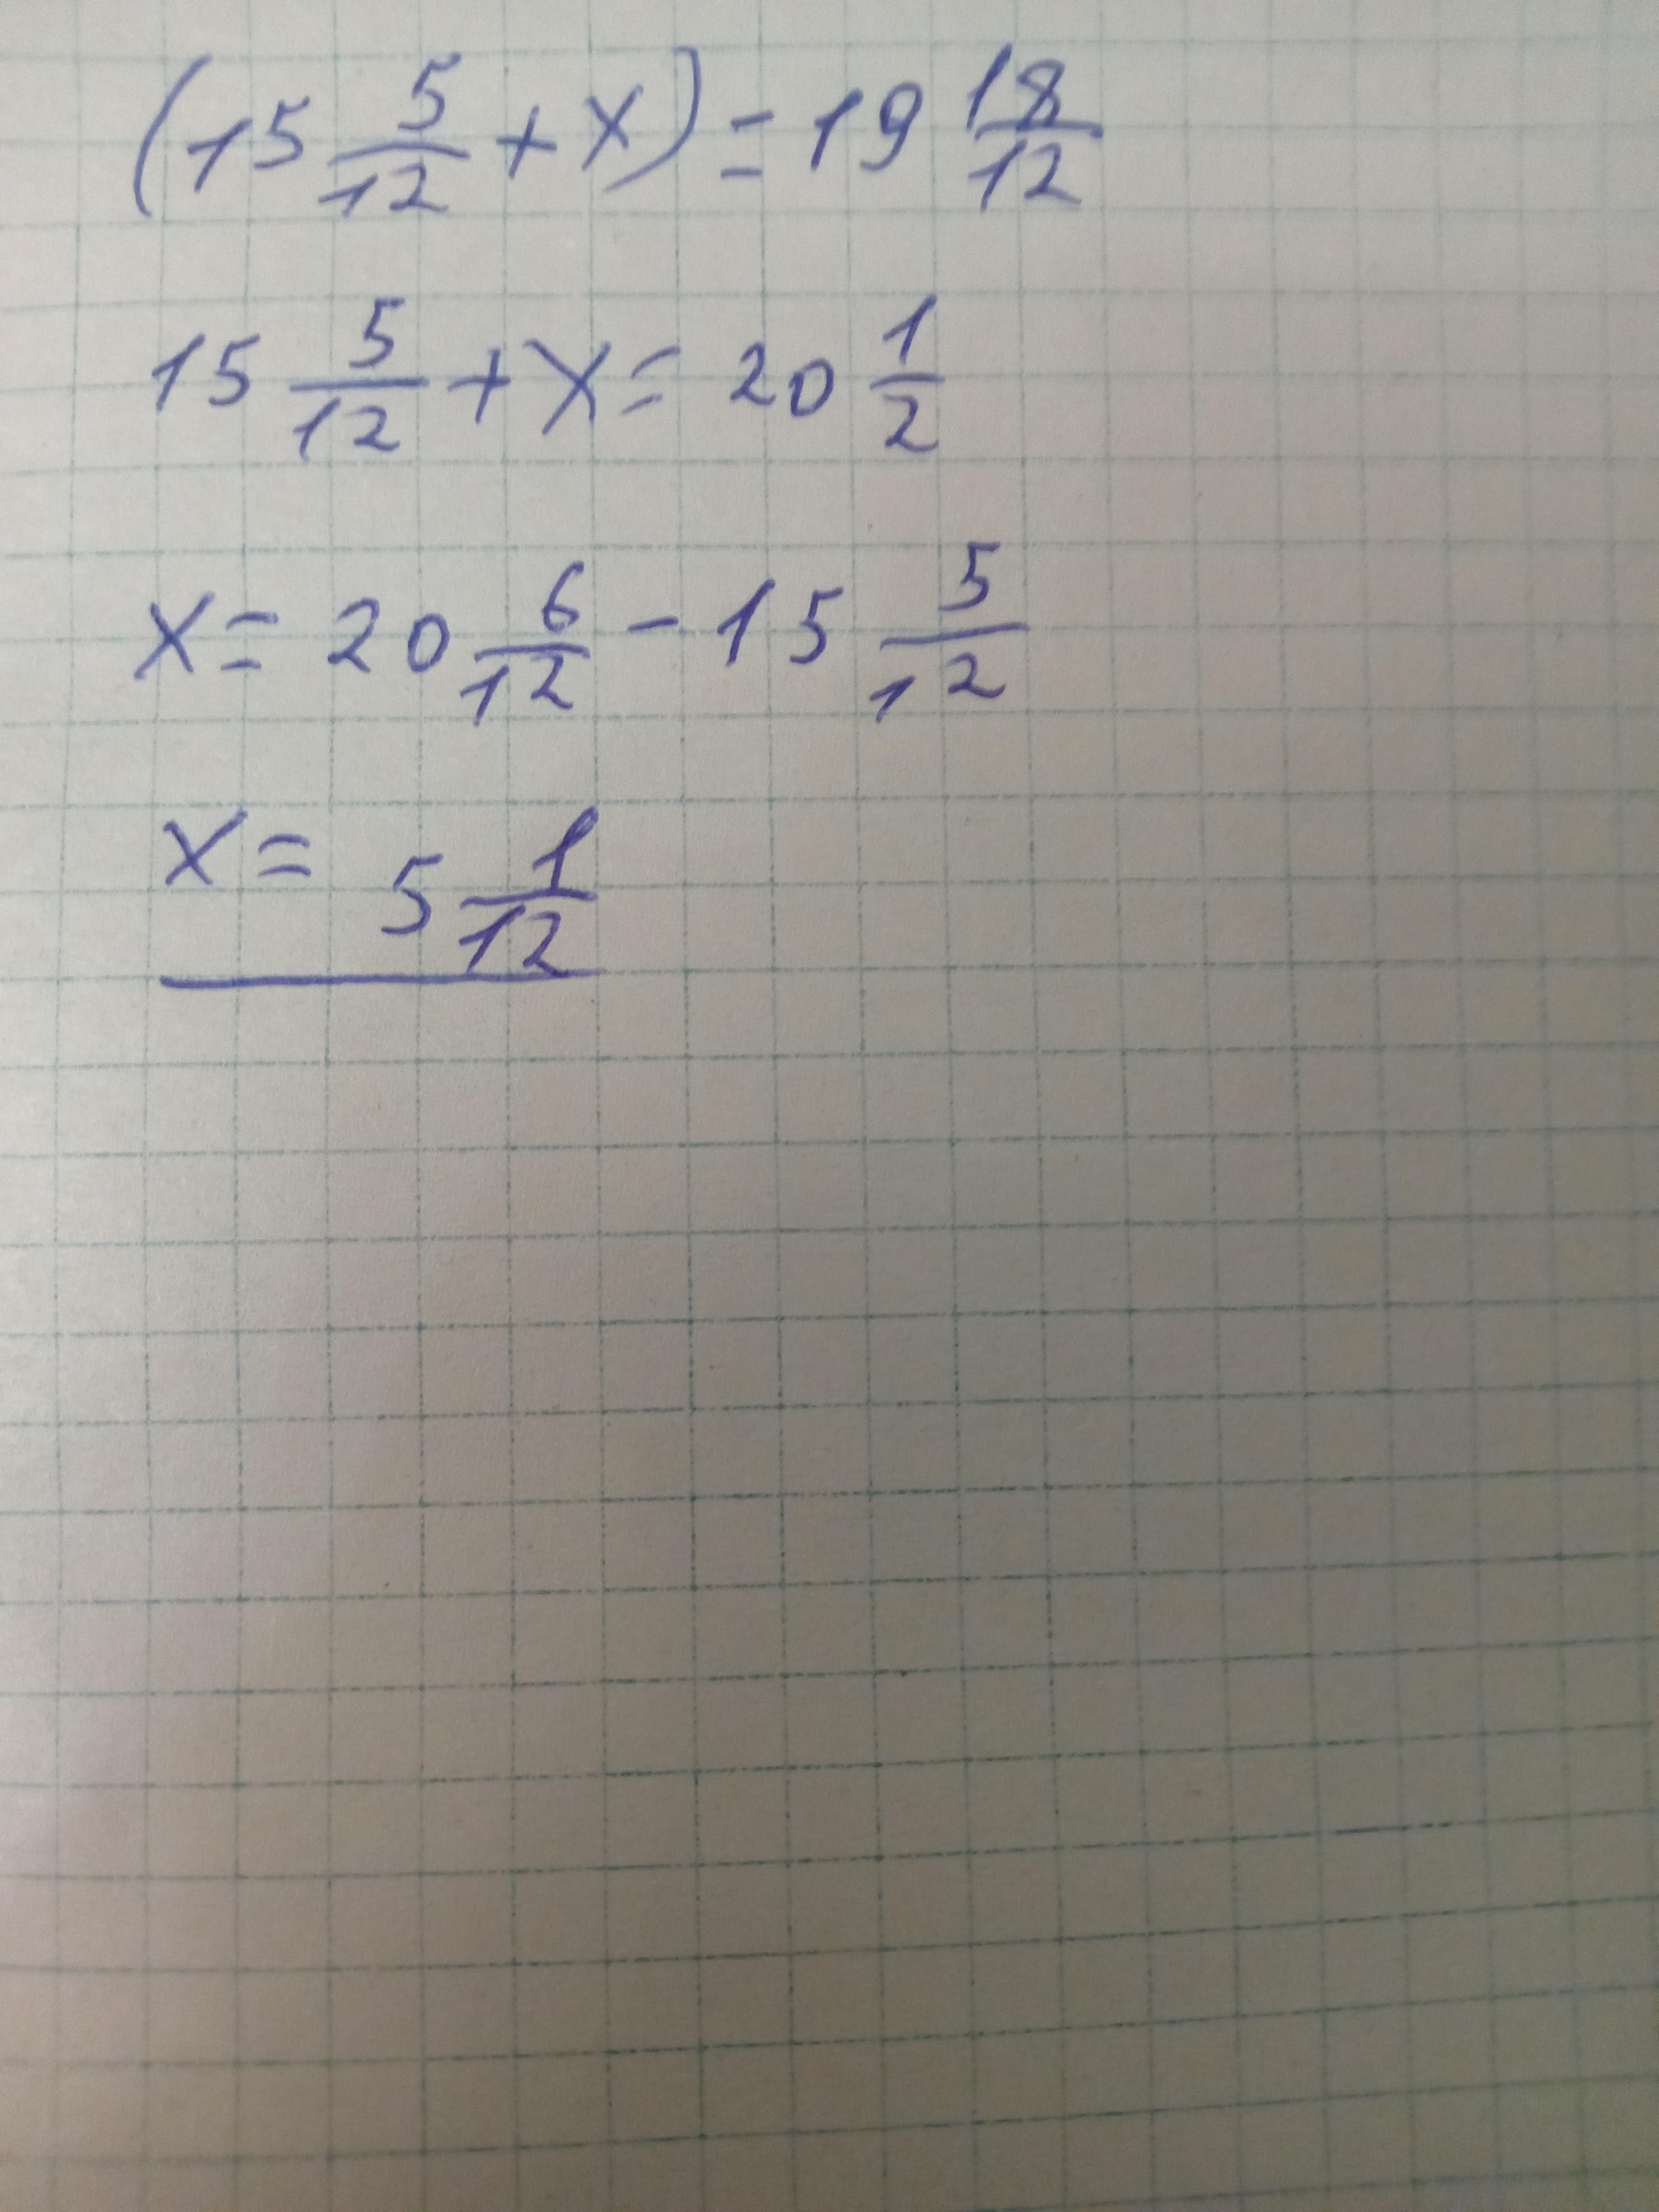 (15 5/12 + x) = 19 18/12
15 5/12 + x = 20 1/2
x = 20 6/12 - 15 5/12
x = 5 1/12